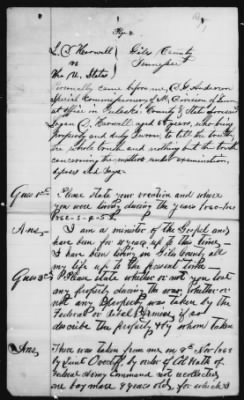 Page 2
L. D. Harwell } Giles County
vs } Tennessee
The U. States }
Personally came before me,
Special Commissioner of M. Division of Tenn
at office in Pulaski County & State aforesaid
Logan D. Harwell aged years, who being
properly and duly Sworn, to tell the truth,
the whole truth and nothing but the truth
concerning the matter under examination,
deposes and Says.
Ques 1st Please state your vocation and where
you were living during the years 1860-1861
1862-3-4-5 &
Ans, I am a minister of the Gospel and
have been for years up to this time—
I have been living in Giles County all
my life up to the present time—
Ques Please state whether or not you lost
any property during the war, whether or
not any Property was taken by the
Federal or Armies, if so
describe the property & by whom taken
Ans, There was taken from me on Nov 1863
by Lieut by order of Col
Federal Army Command not recollected
one bay mare 8 years old, for which I